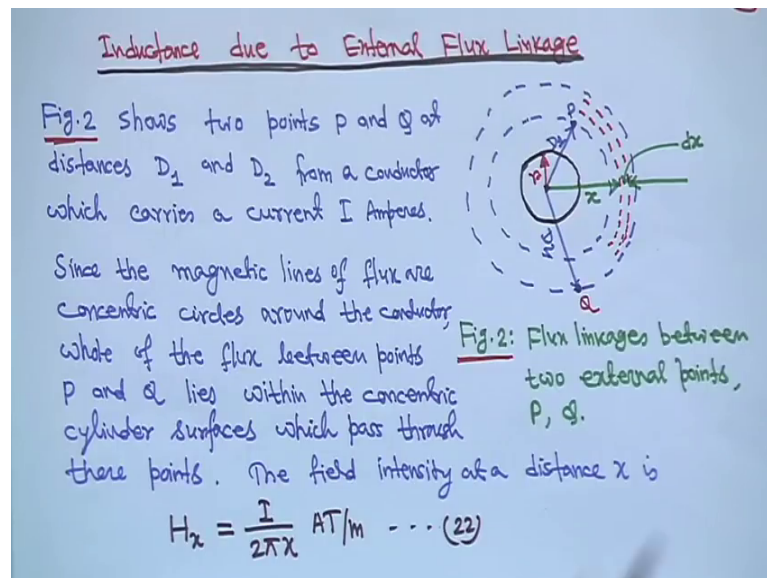 Inductance due to External Flux Linkage
Fig.2 shows two points P and Q at
distances D₁ and D₂ from a conductor
which carries a current I Amperes.
Since the magnetic lines of flux are
concentric circles around the conductor,
whole of the flux between points
P and Q lies within the concentric
cylinder surfaces which pass through
these points. The field intensity at a distance x is
Hₓ = I/2πx AT/m --- (22)
P
D₁
r
x
dx
D₂
Q
Fig.2: Flux linkages between
two external points,
P, Q.